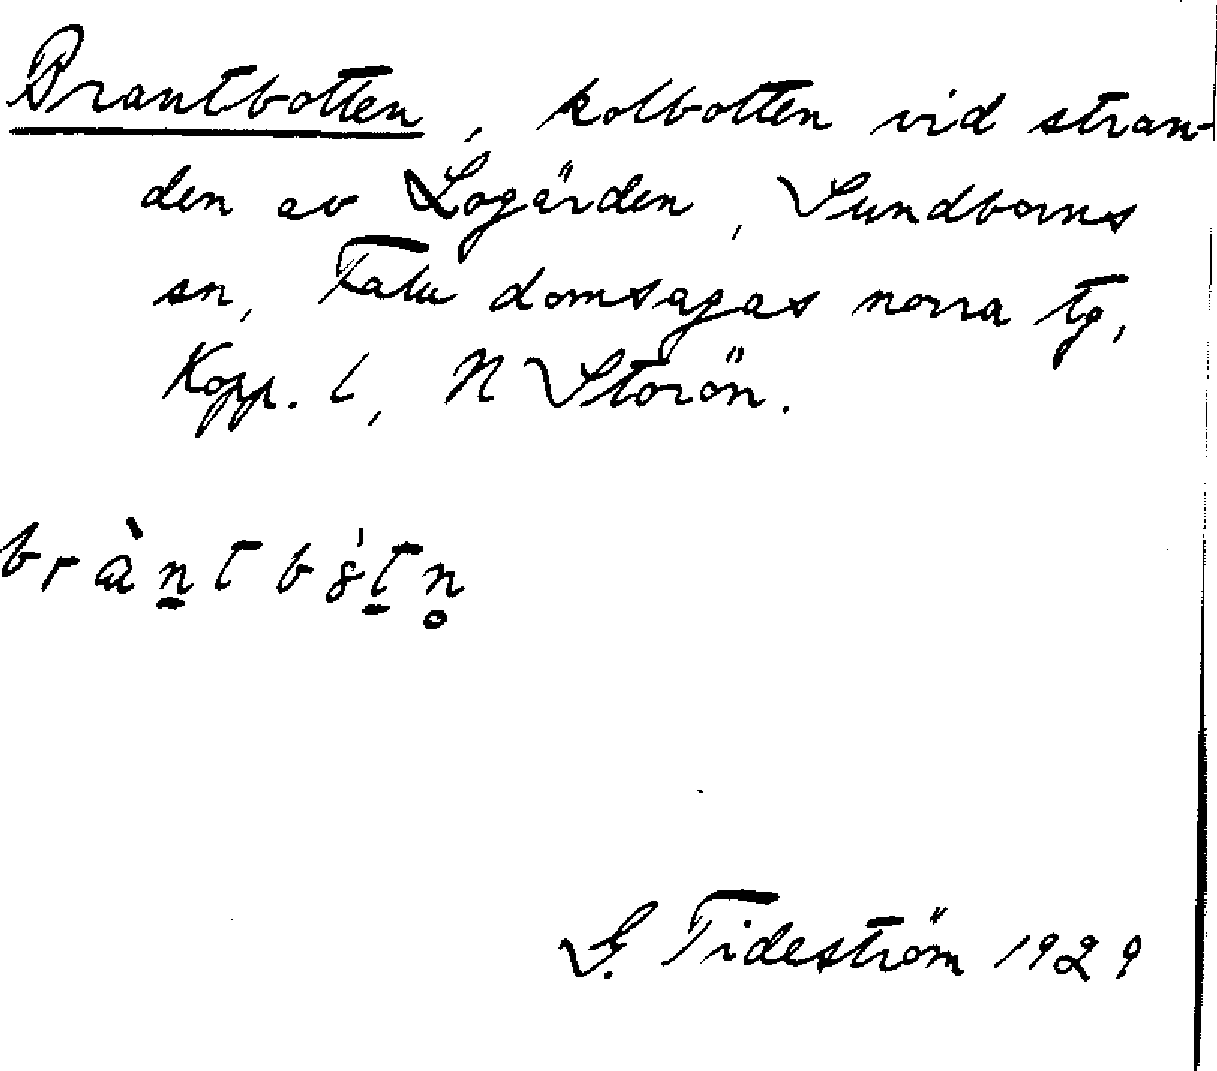 Brantbotten, kolbotten vid stran-
den av Logärden, Sundborns
sn, Falu domsagas norra tg,
Kopp. l, N Storön.
brànt bó̀t̠n̥
G. Tideström 1929